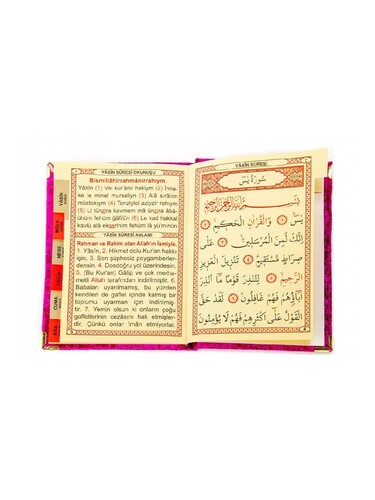 YÂSİN SÛRESİ OKUNUŞU
Bismillâhirrahmânirrahıym.
Yâsin (1) Vel kur'âni hakiym (2) İnne-
ke le minel murseliyn (3) Alâ sırâtım
müstekıym (4) Tenziylel aziyzir rahıym
(5) Li tünjjra kavmem mâ ünjjra âbâ-
ühüm fehüm gâfilûn (6) Le kad hakkal
kavlü alâ ekserihim fehüm lâ yü'minûn
YÂSİN SÛRESİ ANLAMI
Rahman ve Rahim olan Allah'ın İsmiyle.
1. Yâsin, 2. Hikmet dolu Kur'an hakkı
için, 3. Sen şüphesiz peygamberler-
densin. 4. Dosdoğru yol üzerindesin.
5. (Bu Kur'an) Gâlip ve çok merha-
metli Allah tarafından indirilmiştir. 6.
Babaları uyarılmamış, bu yüzden
kendileri de gaflet içinde kalmış bir
toplumu uyarman için indirilmiş-
tir. 7. Yemin olsun ki onların çoğu
gafletlerinin cezasını hak etmişler-
dir. Çünkü onlar îman etmiyorlar.
YÂSİN
MÜLK
NEBE
CUMA
YÂSİN SÛRESİ
سُورَةُ يٰسٓ
بِسْمِ اللهِ الرَّحْمٰنِ الرَّحِيمِ
يٰسٓ ﴿١﴾ وَالْقُرْاٰنِ الْحَكِيمِ ﴿٢﴾
اِنَّكَ لَمِنَ الْمُرْسَلِينَ ﴿٣﴾ عَلٰى
صِرَاطٍ مُسْتَقِيمٍ ﴿٤﴾ تَنْزِيلَ الْعَزِيزِ
الرَّحِيمِ ﴿٥﴾ لِتُنْذِرَ قَوْمًا مَٓا اُنْذِرَ
اٰبَٓاؤُ۬هُمْ فَهُمْ غَافِلُونَ ﴿٦﴾ لَقَدْ حَقَّ
الْقَوْلُ عَلٰٓى اَكْثَرِهِمْ فَهُمْ لَا يُؤْمِنُونَ